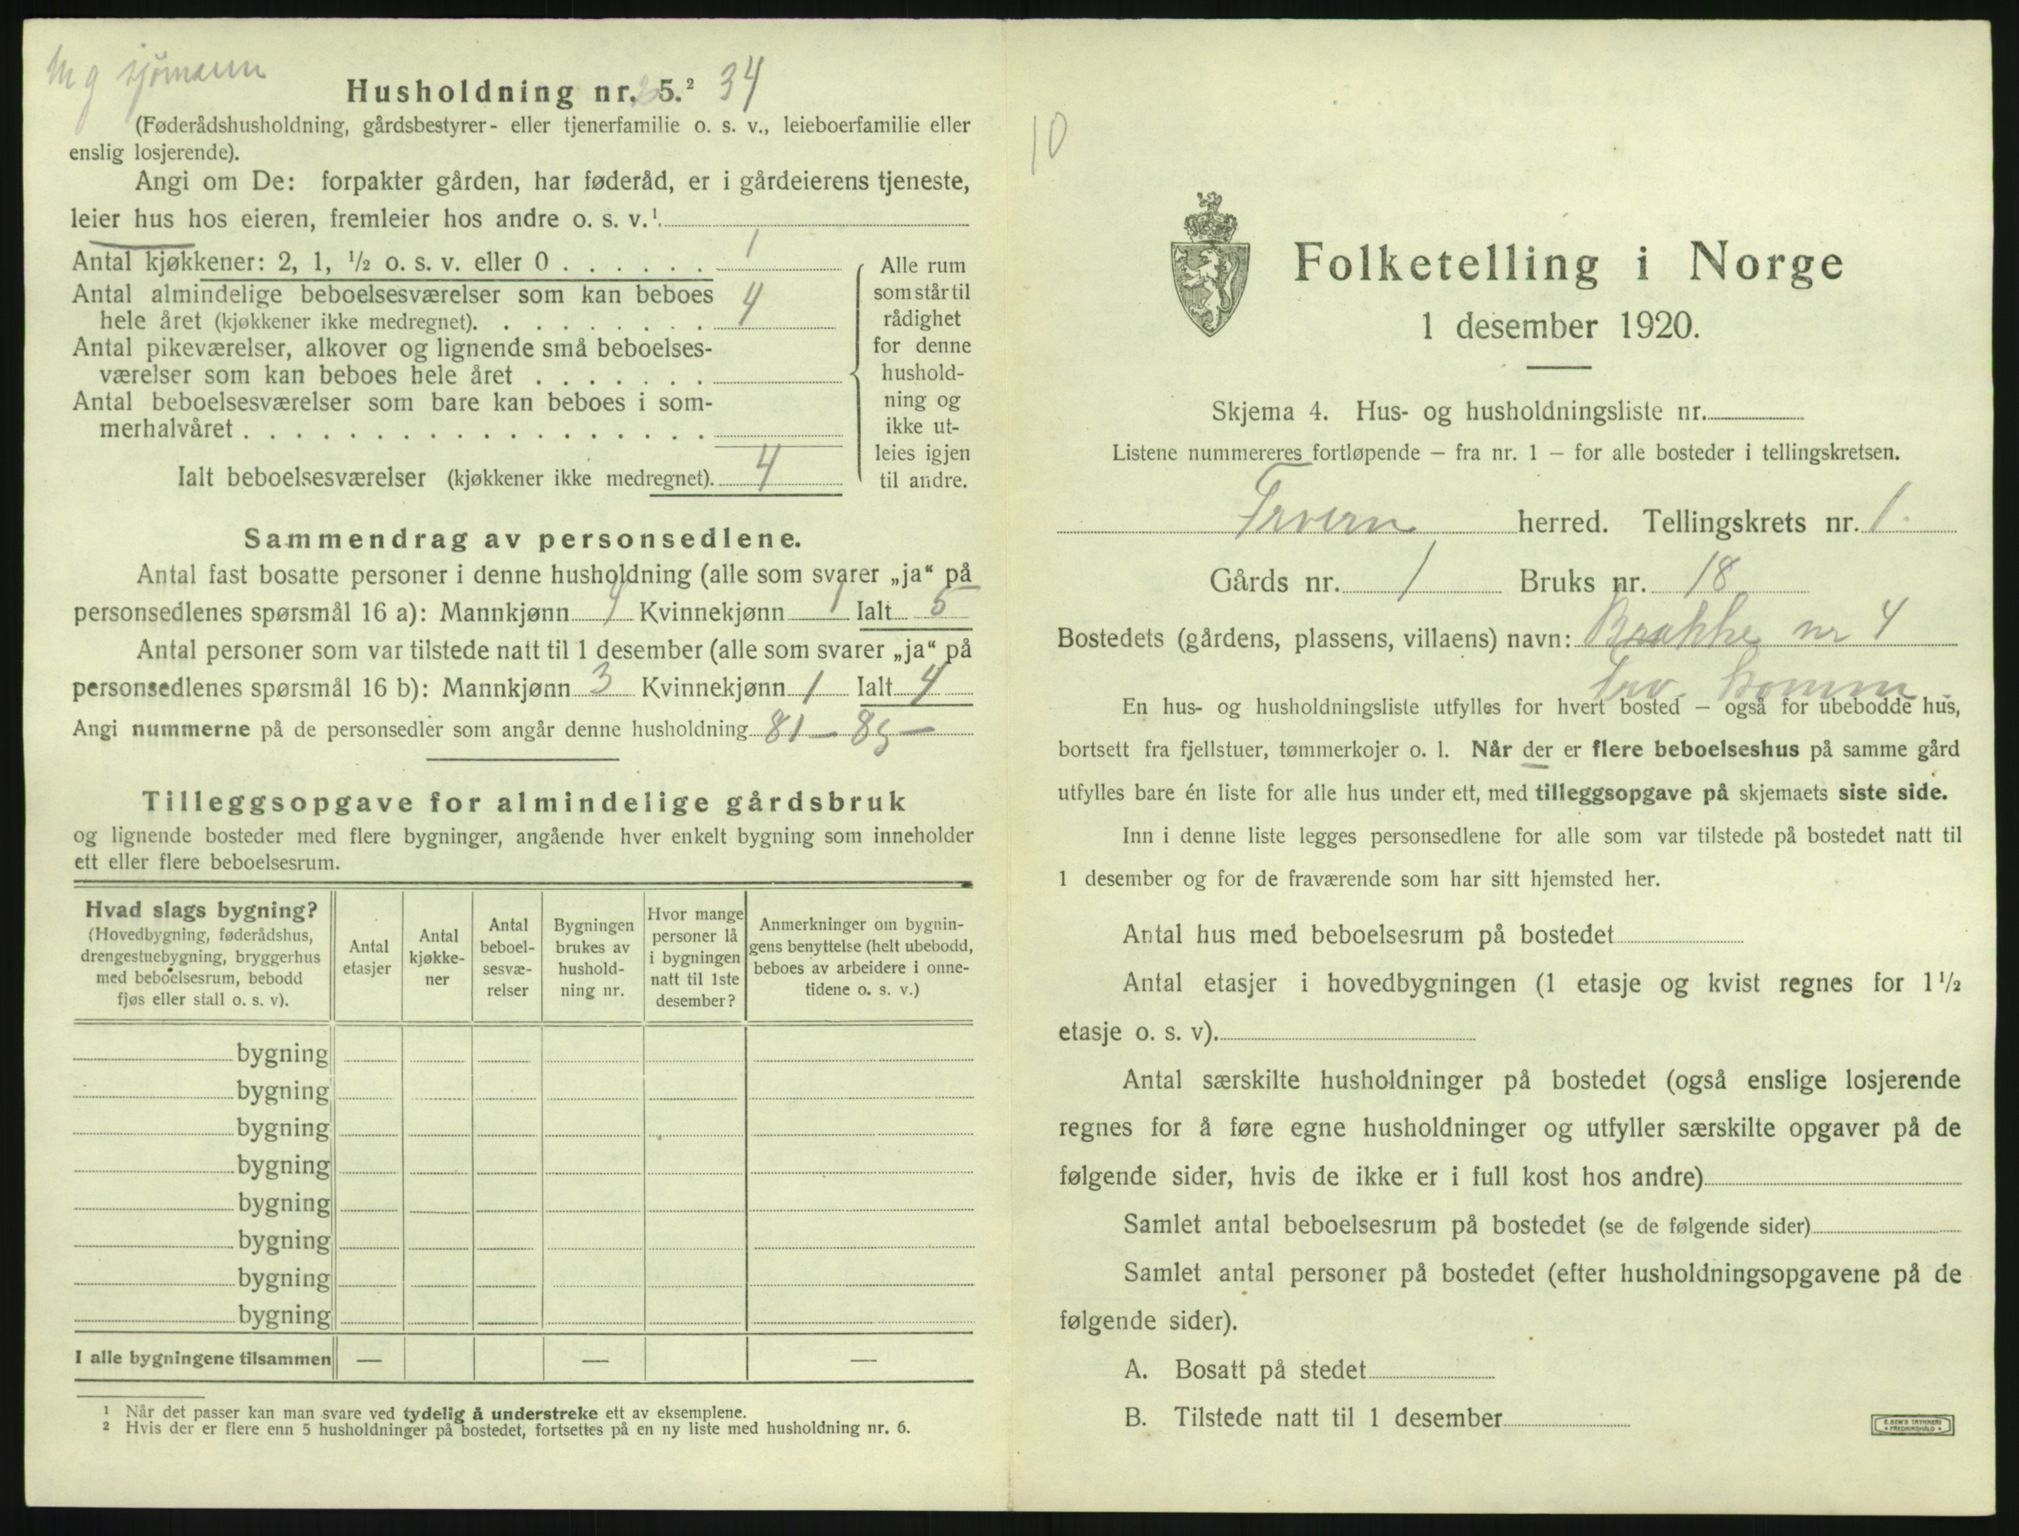 M g sjømann
Husholdning nr. 5.² 34
(Føderådshusholdning, gårdsbestyrer- eller tjenerfamilie o. s. v., leieboerfamilie eller
enslig losjerende).
Angi om De: forpakter gården, har føderåd, er i gårdeierens tjeneste,
leier hus hos eieren, fremleier hos andre o. s. v.¹.
Antal kjøkkener: 2, 1, ½ o. s. v. eller 0 . . . . . . 1
Antal almindelige beboelsesværelser som kan beboes
hele året (kjøkkener ikke medregnet). . . . . . . . . 4
Antal pikeværelser, alkover og lignende små beboelses-
værelser som kan beboes hele året . . . . . . .
Antal beboelsesværelser som bare kan beboes i som-
merhalvåret . . . . . . . . . . . . . . . . . .
Ialt beboelsesværelser (kjøkkener ikke medregnet). 4
Alle rum
som står til
rådighet
for denne
hushold-
ning og
ikke ut-
leies igjen
til andre.
Sammendrag av personsedlene.
Antal fast bosatte personer i denne husholdning (alle som svarer „ja“ på
personsedlenes spørsmål 16 a): Mannkjønn 4 Kvinnekjønn 1 Ialt 5
Antal personer som var tilstede natt til 1 desember (alle som svarer „ja“ på
personsedlenes spørsmål 16 b): Mannkjønn 3 Kvinnekjønn 1 Ialt 4
Angi nummerne på de personsedler som angår denne husholdning 81 - 85 -
Tilleggsopgave for almindelige gårdsbruk
og lignende bosteder med flere bygninger, angående hver enkelt bygning som inneholder
ett eller flere beboelsesrum.
Hvad slags bygning?
(Hovedbygning, føderådshus,
drengestuebygning, bryggerhus
med beboelsesrum, bebodd
fjøs eller stall o. s. v).
Antal
etasjer
Antal
kjøkke-
ner
Antal
beboel-
sesvæ-
relser
Bygningen
brukes av
hushold-
ning nr.
Hvor mange
personer lå
i bygningen
natt til 1ste
desember?
Anmerkninger om bygnin-
gens benyttelse (helt ubebodd,
beboes av arbeidere i onne-
tidene o. s. v.)
bygning
bygning
bygning
bygning
bygning
bygning
bygning
bygning
I alle bygningene tilsammen — — —
¹ Når det passer kan man svare ved tydelig å understreke ett av eksemplene.
² Hvis der er flere enn 5 husholdninger på bostedet, fortsettes på en ny liste med husholdning nr. 6.
10
Folketelling i Norge
1 desember 1920.
Skjema 4. Hus- og husholdningsliste nr.
Listene nummereres fortløpende — fra nr. 1 — for alle bosteder i tellingskretsen.
Trvern herred. Tellingskrets nr. 1.
Gårds nr. 1 Bruks nr. 18
Bostedets (gårdens, plassens, villaens) navn: Brakke nr 4
Trv. komm
En hus- og husholdningsliste utfylles for hvert bosted — også for ubebodde hus,
bortsett fra fjellstuer, tømmerkojer o. l. Når der er flere beboelseshus på samme gård
utfylles bare én liste for alle hus under ett, med tilleggsopgave på skjemaets siste side.
Inn i denne liste legges personsedlene for alle som var tilstede på bostedet natt til
1 desember og for de fraværende som har sitt hjemsted her.
Antal hus med beboelsesrum på bostedet
Antal etasjer i hovedbygningen (1 etasje og kvist regnes for 1½
etasje o. s. v).
Antal særskilte husholdninger på bostedet (også enslige losjerende
regnes for å føre egne husholdninger og utfyller særskilte opgaver på de
følgende sider, hvis de ikke er i full kost hos andre)
Samlet antal beboelsesrum på bostedet (se de følgende sider)
Samlet antal personer på bostedet (efter husholdningsopgavene på de
følgende sider).
A. Bosatt på stedet
B. Tilstede natt til 1 desember
E. SEM'S TRYKKERI
FREDRIKSHALD